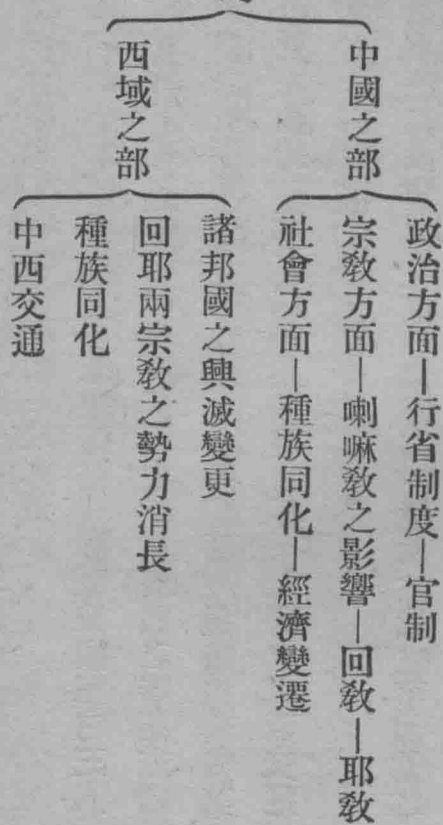 中國之部
政治方面—行省制度—官制
宗教方面—喇嘛教之影響—回教—耶教
社會方面—種族同化—經濟變遷
西域之部
諸邦國之興滅變更
回耶兩宗教之勢力消長
種族同化
中西交通